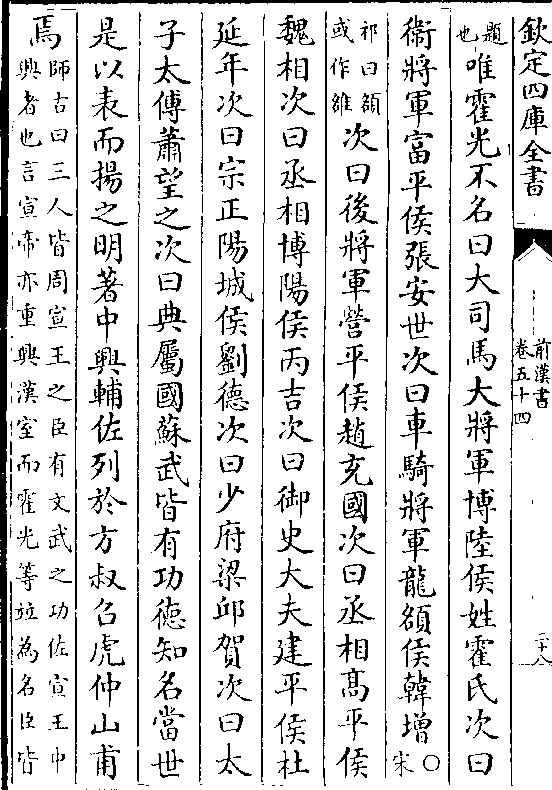 欽定四庫全書
前漢書
卷五十四
二十八
題
也
唯霍光不名曰大司馬大將軍博陸侯姓霍氏次曰
衞將軍富平侯張安世次曰車騎將軍龍頟侯韓增〇宋
祁曰頟
或作雒
次曰後將軍營平侯趙充國次曰丞相髙平侯
魏相次曰丞相博陽侯丙吉次曰御史大夫建平侯杜
延年次曰宗正陽城侯劉德次曰少府梁邱賀次曰太
子太傅蕭望之次曰典屬國蘇武皆有功德知名當世
是以表而揚之明著中興輔佐列於方叔召虎仲山甫
焉
師古曰三人皆周宣王之臣有文武之功佐宣王中
興者也言宣帝亦重興漢室而霍光等竝為名臣皆